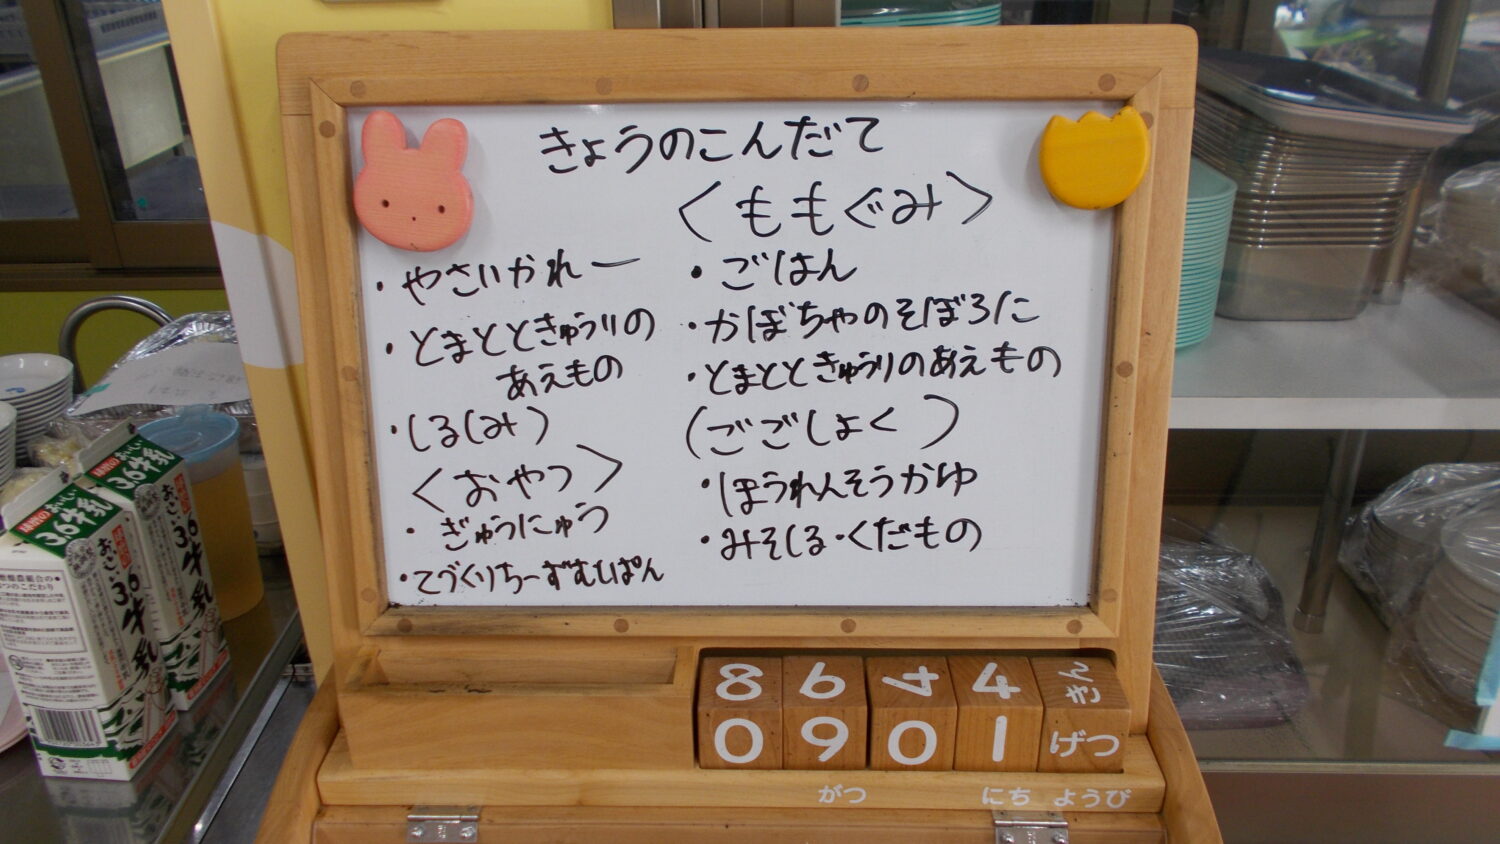 きょうのこんだて
・やさいかれー
・とまとときゅうりの
あえもの
・しるしみ)
<おやつ>
・ぎゅうにゅう
・てづくりちーずむしぱん
<ももぐみ>
・ごはん
・かぼちゃのそぼろに
・とまとときゅうりのあえもの
(ごごしょく)
・ほうれんそうかゆ
・みそしる・くだもの
8 6 4 4 きん
0 9 0 1 げつ
がつ にち ようび
3.6牛乳
おいしい3.6牛乳
3.6牛乳
おいしい3.6牛乳